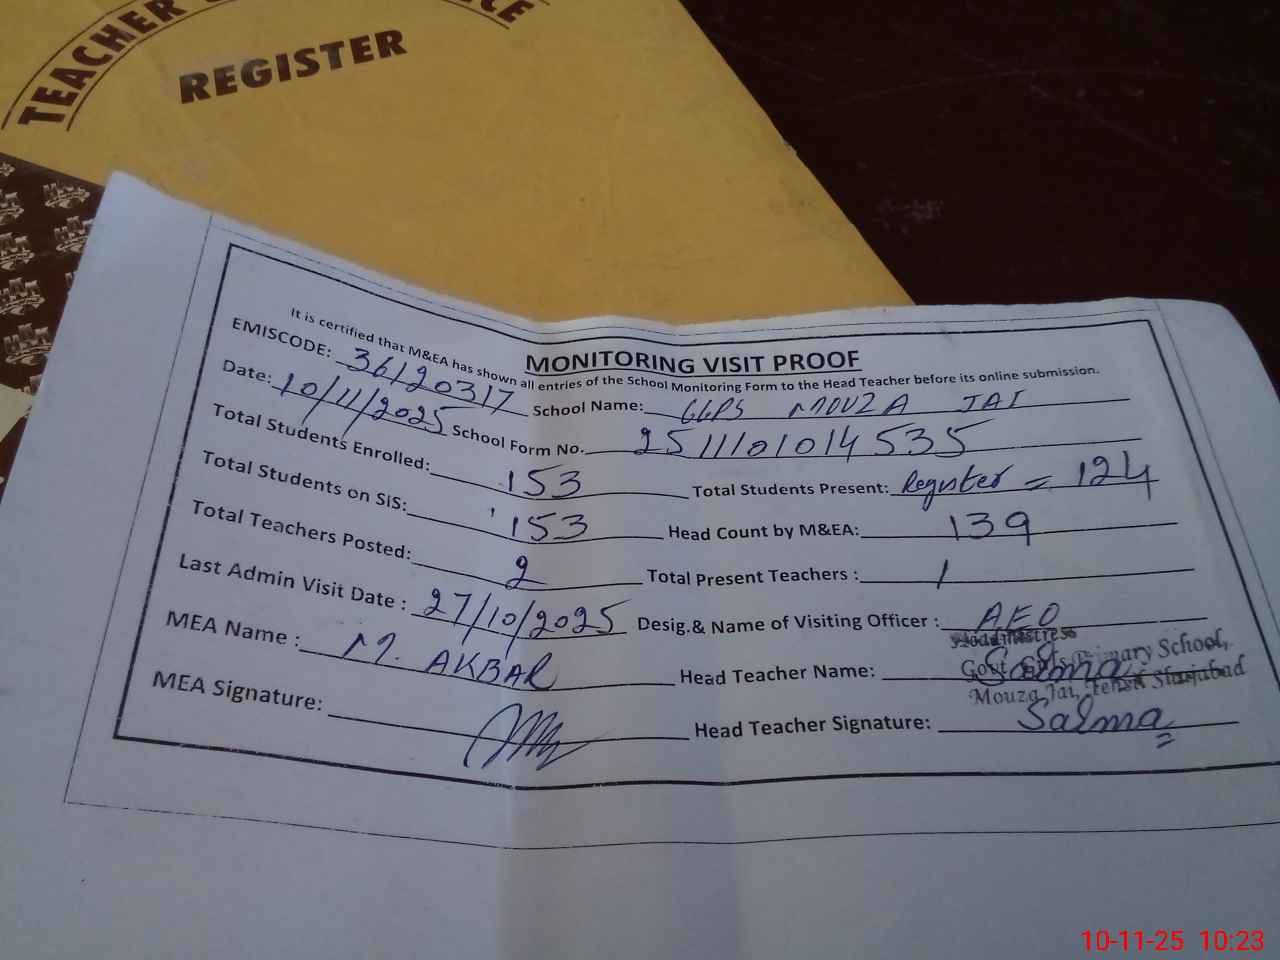 TEACHER
REGISTER
MONITORING VISIT PROOF
It is certified that M&EA has shown all entries of the School Monitoring Form to the Head Teacher before its online submission.
EMISCODE: 36120317 School Name: GGPS MOUZA JAI
Date: 10/11/2025 School Form No. 2511101014535
Total Students Enrolled: 153 Total Students Present: Register = 124
Total Students on SIS: 153 Head Count by M&EA: 139
Total Teachers Posted: 2 Total Present Teachers : 1
Last Admin Visit Date : 27/10/2025 Desig.& Name of Visiting Officer : AEO
MEA Name : M. AKBAR Head Teacher Name: Salma
Headmistress
Govt. Girls Primary School,
Mouza Jai, Tehsil Shujabad
MEA Signature: Head Teacher Signature: Salma
10-11-25 10:23